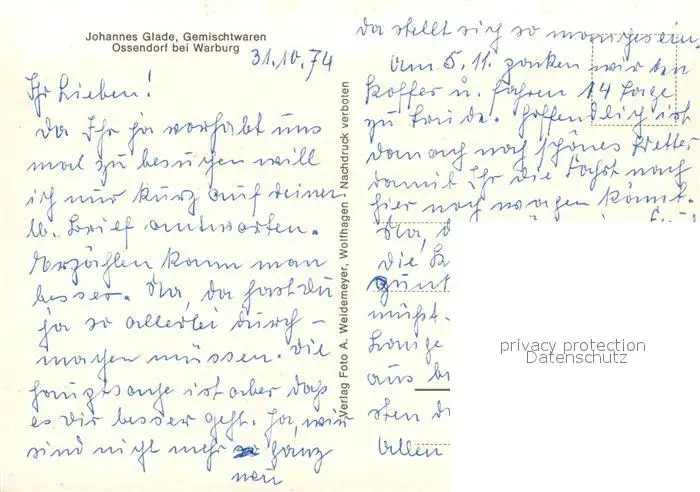 Johannes Glade, Gemischtwaren
Ossendorf bei Warburg
31.10.74
Ihr Lieben!
Da Ihr ja vorhabt uns
mal zu besuchen will
ich nur kurz auf deinen
lb. Brief antworten.
Erzählen kann man
besser. Na, da hast Du
ja so allerlei durch-
machen müssen. Die
Hauptsache ist aber daß
es Dir besser geht. Ja, wir
sind nicht mehr so ganz
neu
Verlag Foto A. Weidemeyer, Wolfhagen - Nachdruck verboten
da stellt sich so manches ein
Am 5.11. packen wir den
Koffer u. fahren 14 Tage
zu Trude. Hoffendlich ist
danach noch schönes Wetter
damit Ihr die Fahrt nach
hier noch wagen könnt.
Na, d
die
müßt.
aus
sten d
Allen
privacy protection
Datenschutz